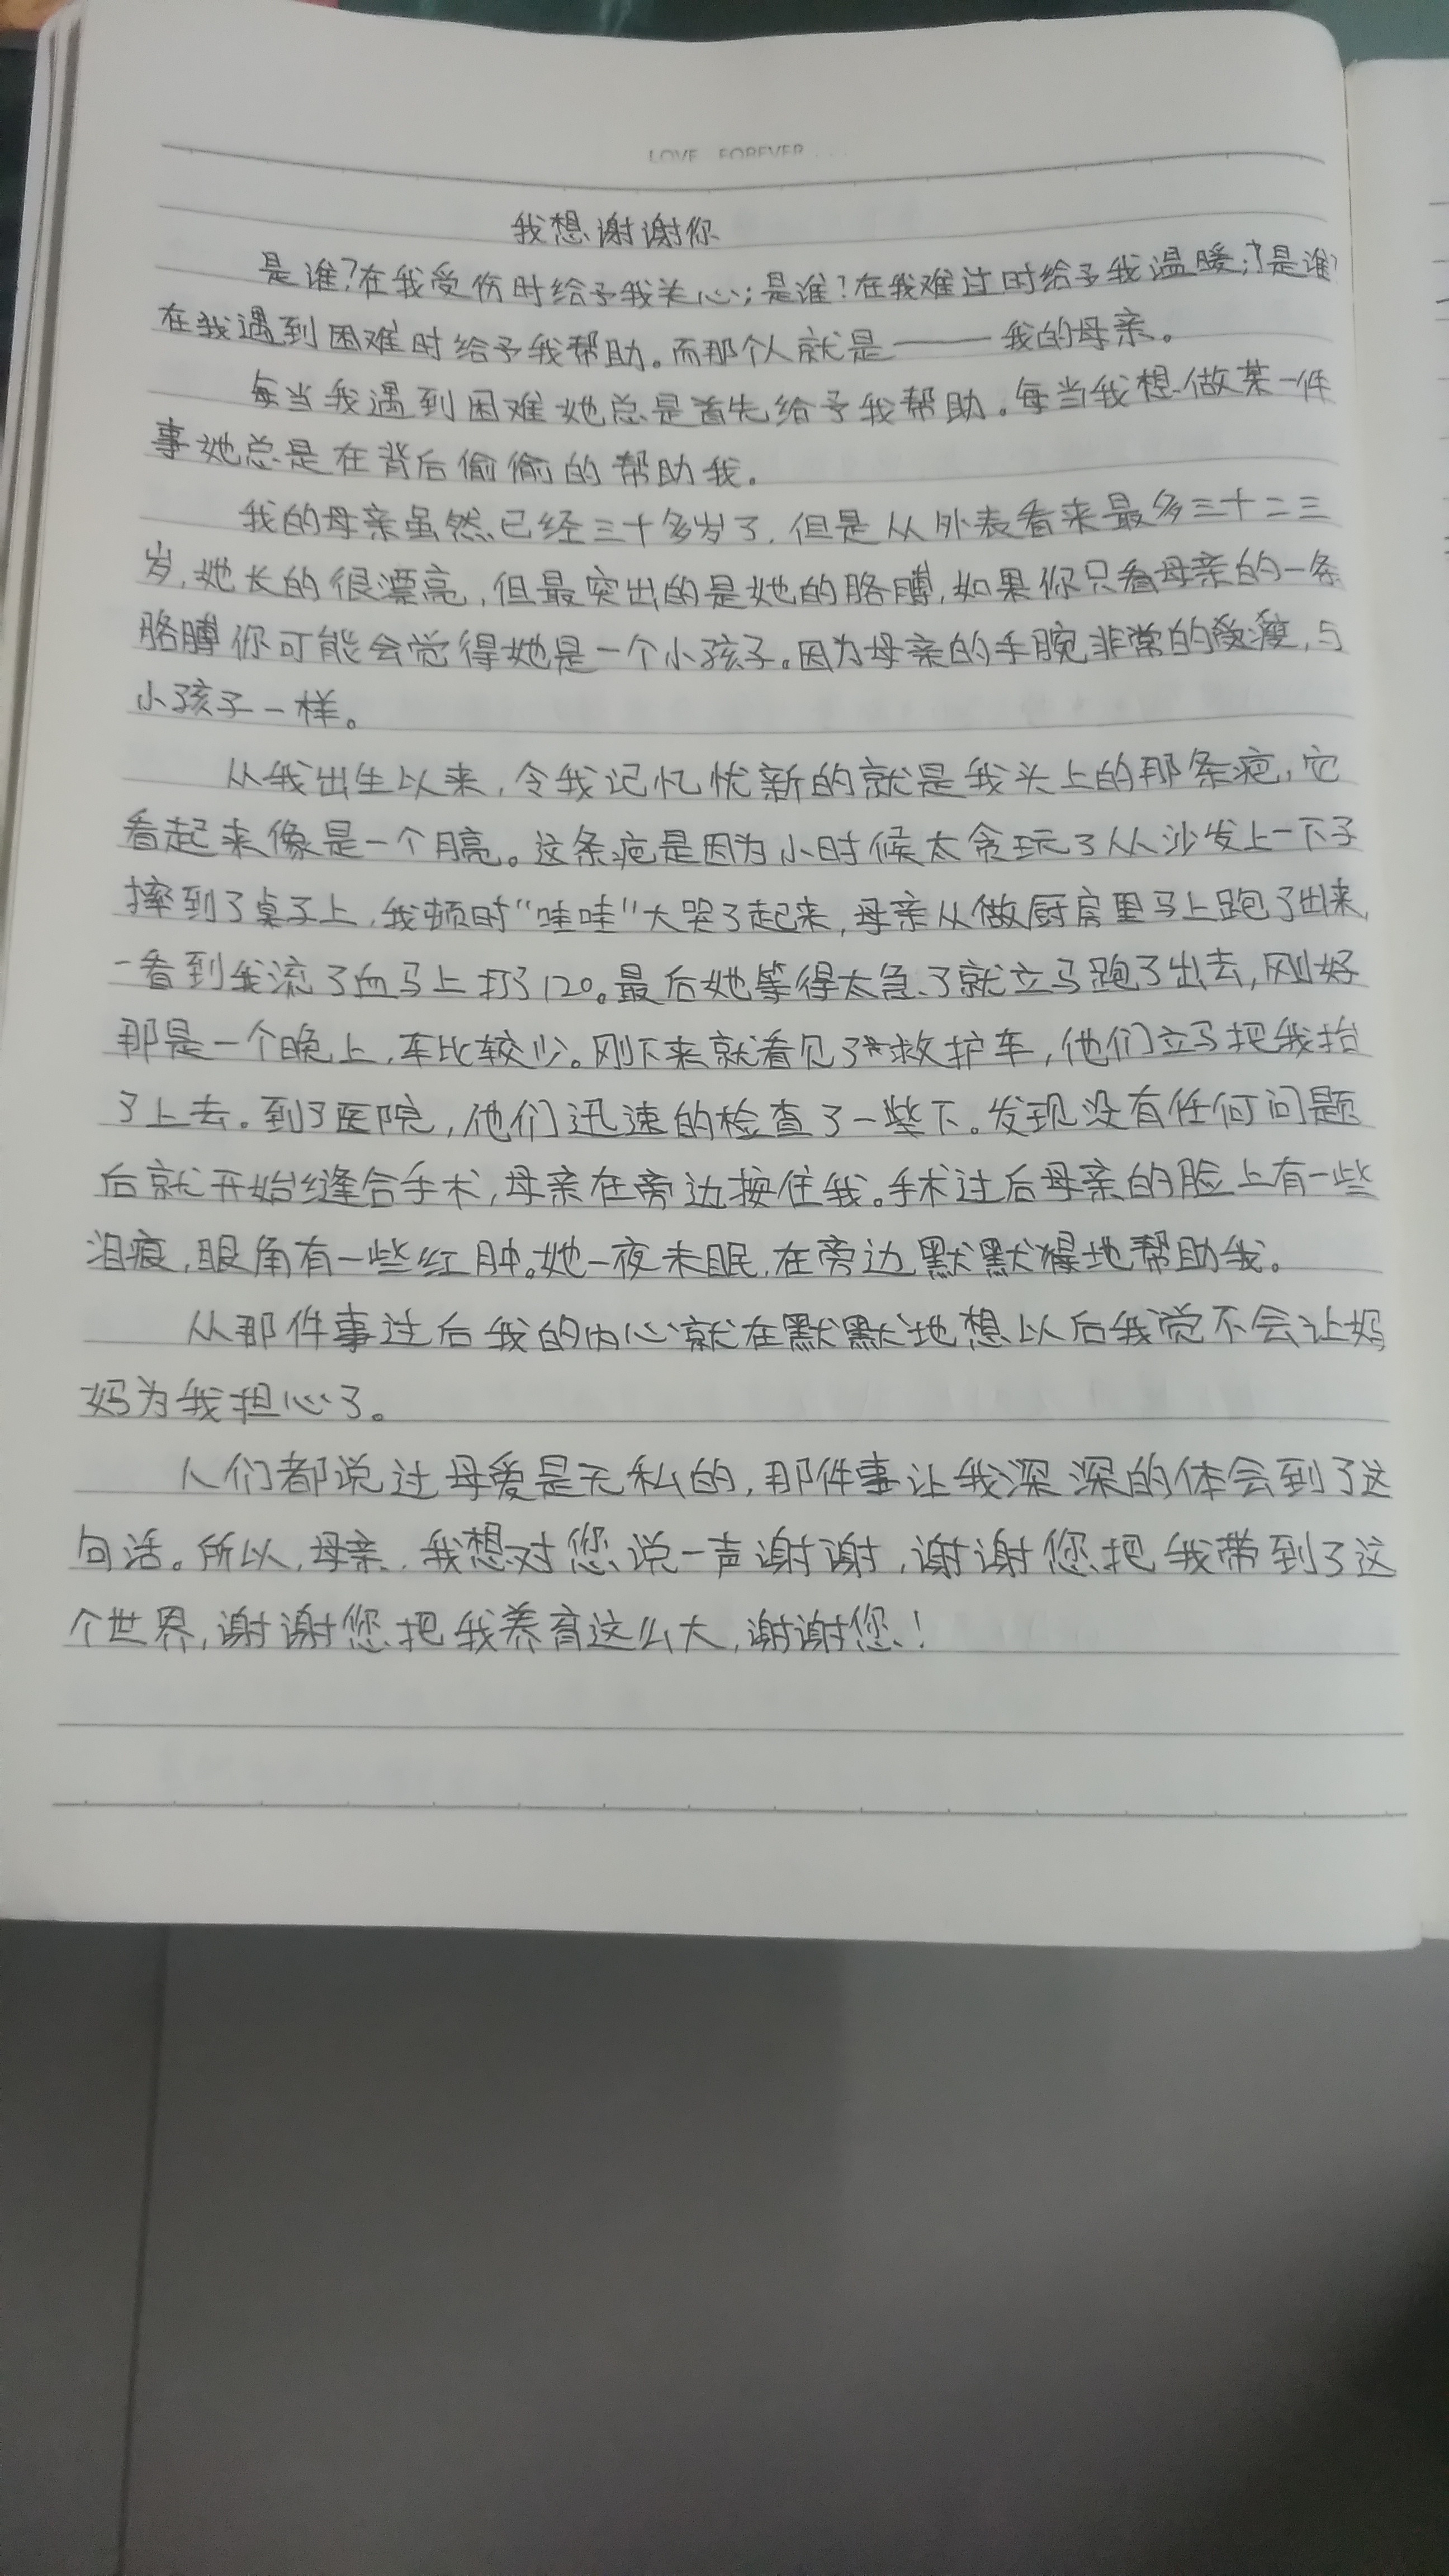 LOVE FOREVER...
我想谢谢你
是谁?在我受伤时给予我关心;是谁?在我难过时给予我温暖;是谁?
在我遇到困难时给予我帮助。而那个人就是——我的母亲。
每当我遇到困难她总是首先给予我帮助。每当我想做某一件
事她总是在背后偷偷的帮助我。
我的母亲虽然已经三十多岁了,但是从外表看来最多三十二三
岁,她长的很漂亮,但最突出的是她的胳膊,如果你只看母亲的一条
胳膊你可能会觉得她是一个小孩子。因为母亲的手腕非常的瘦,与
小孩子一样。
从我出生以来,令我记忆忧新的就是我头上的那条疤,它
看起来像是一个月亮。这条疤是因为小时候太贪玩了从沙发上一下子
摔到了桌子上,我顿时“哇哇”大哭了起来,母亲从做厨房里马上跑了出来,
一看到我流了血马上打了120。最后她等得太急了就立马跑了出去,刚好
那是一个晚上,车比较少。刚下来就看见了救护车,他们立马把我抬
了上去。到了医院,他们迅速的检查了一些下。发现没有任何问题
后就开始缝合手术,母亲在旁边按住我。手术过后母亲的脸上有一些
泪痕,眼角有一些红肿。她一夜未眠,在旁边默默地帮助我。
从那件事过后我的内心就在默默地想以后我觉不会让妈
妈为我担心了。
人们都说过母爱是无私的,那件事让我深深的体会到了这
句话。所以,母亲,我想对您说一声谢谢,谢谢您把我带到了这
个世界,谢谢您把我养育这么大,谢谢您!